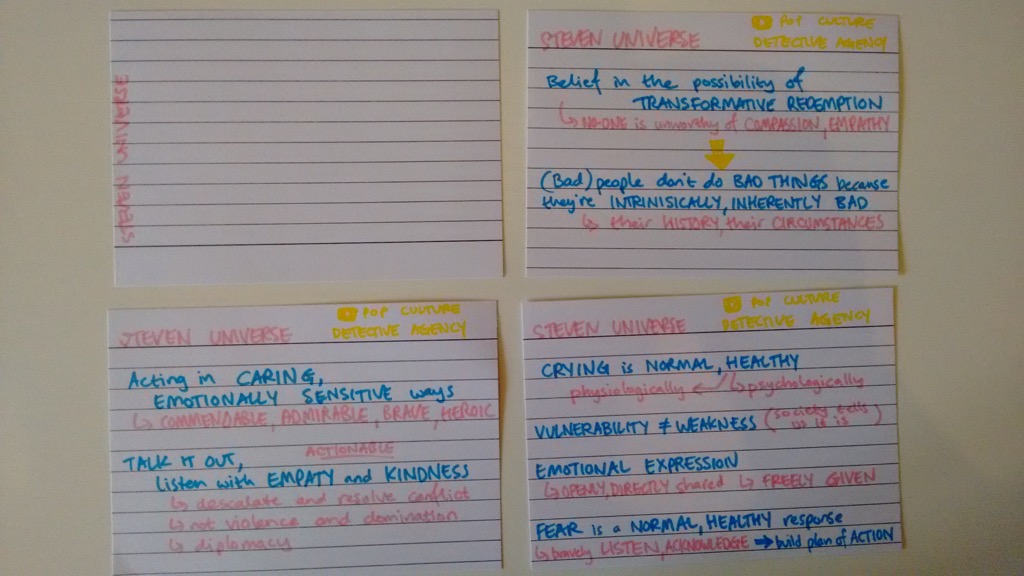 STEVEN UNIVERSE
STEVEN UNIVERSE
POP CULTURE
DETECTIVE AGENCY
Belief in the possibility of
TRANSFORMATIVE REDEMPTION
↳ NO-ONE is unworthy of COMPASSION, EMPATHY
(Bad) people don't do BAD THINGS because
they're INTRINISICALLY, INHERENTLY BAD
↳ their HISTORY, their CIRCUMSTANCES
STEVEN UNIVERSE
POP CULTURE
DETECTIVE AGENCY
Acting in CARING,
EMOTIONALLY SENSITIVE ways
↳ COMMENDABLE, ADMIRABLE, BRAVE, HEROIC
ACTIONABLE
TALK IT OUT,
listen with EMPATY and KINDNESS
↳ descalate and resolve conflict
↳ not violence and domination
↳ diplomacy
STEVEN UNIVERSE
POP CULTURE
DETECTIVE AGENCY
CRYING is NORMAL, HEALTHY
physiologically ↙ ↳ psychologically
VULNERABILITY ≠ WEAKNESS (society tells
us it is)
EMOTIONAL EXPRESSION
↳ OPENLY, DIRECTLY shared ↳ FREELY GIVEN
FEAR is a NORMAL, HEALTHY response
↳ bravely LISTEN, ACKNOWLEDGE → build plan of ACTION